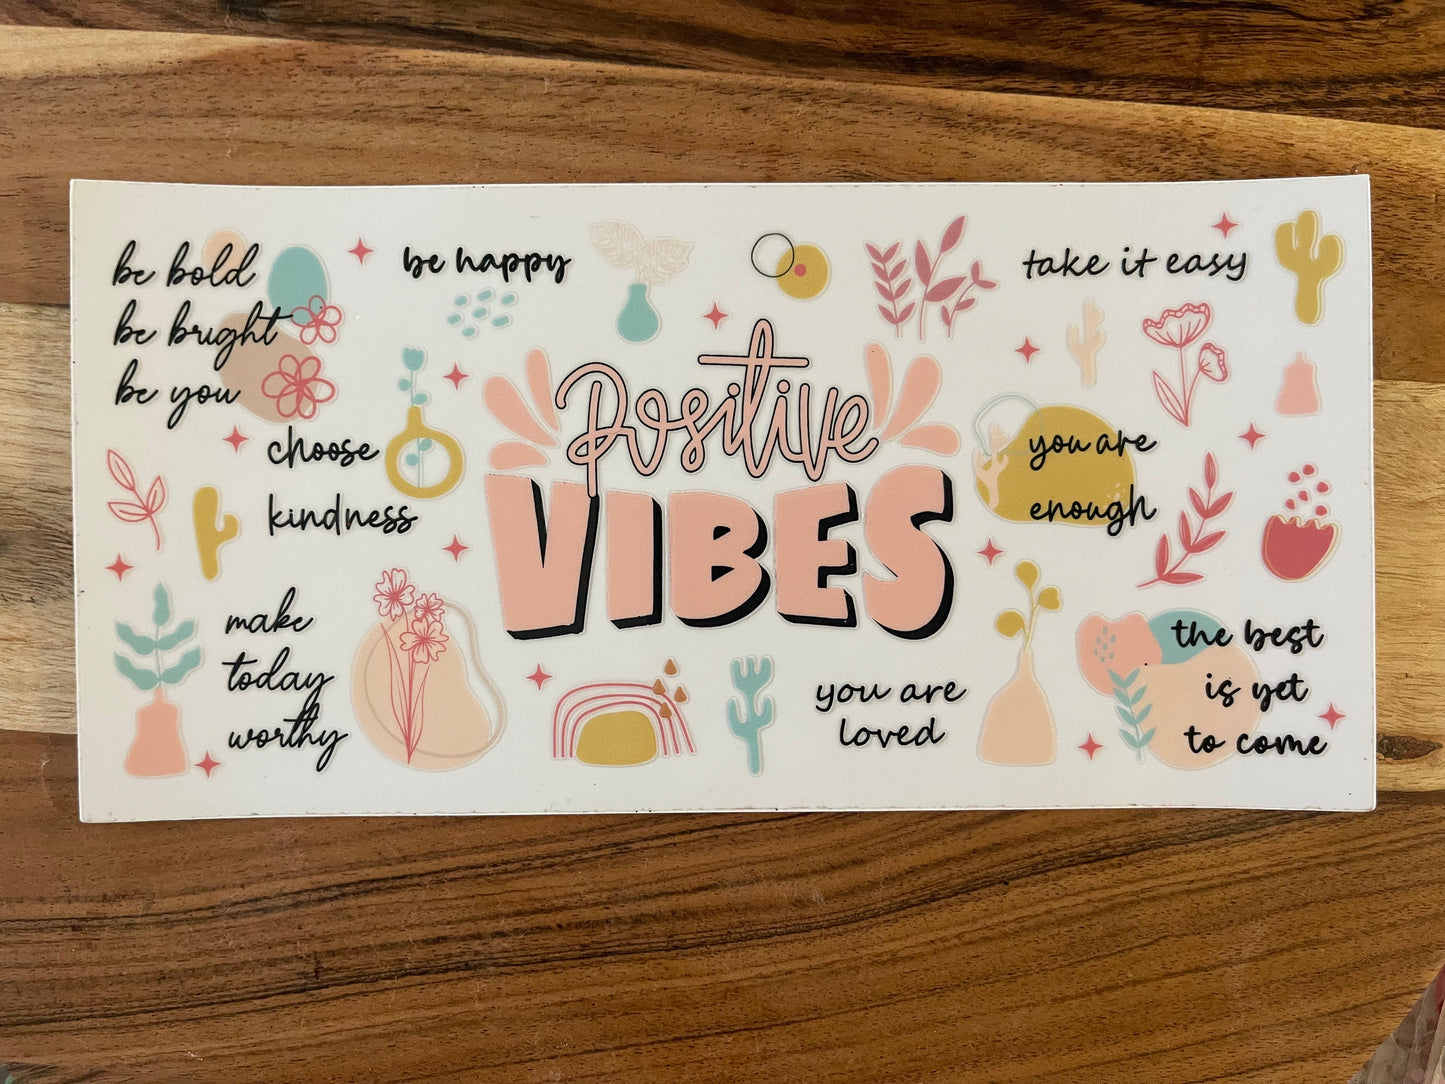 be bold
be bright
be you
be happy
take it easy
Positive
VIBES
choose
kindness
you are
enough
make
today
worthy
you are
loved
the best
is yet
to come